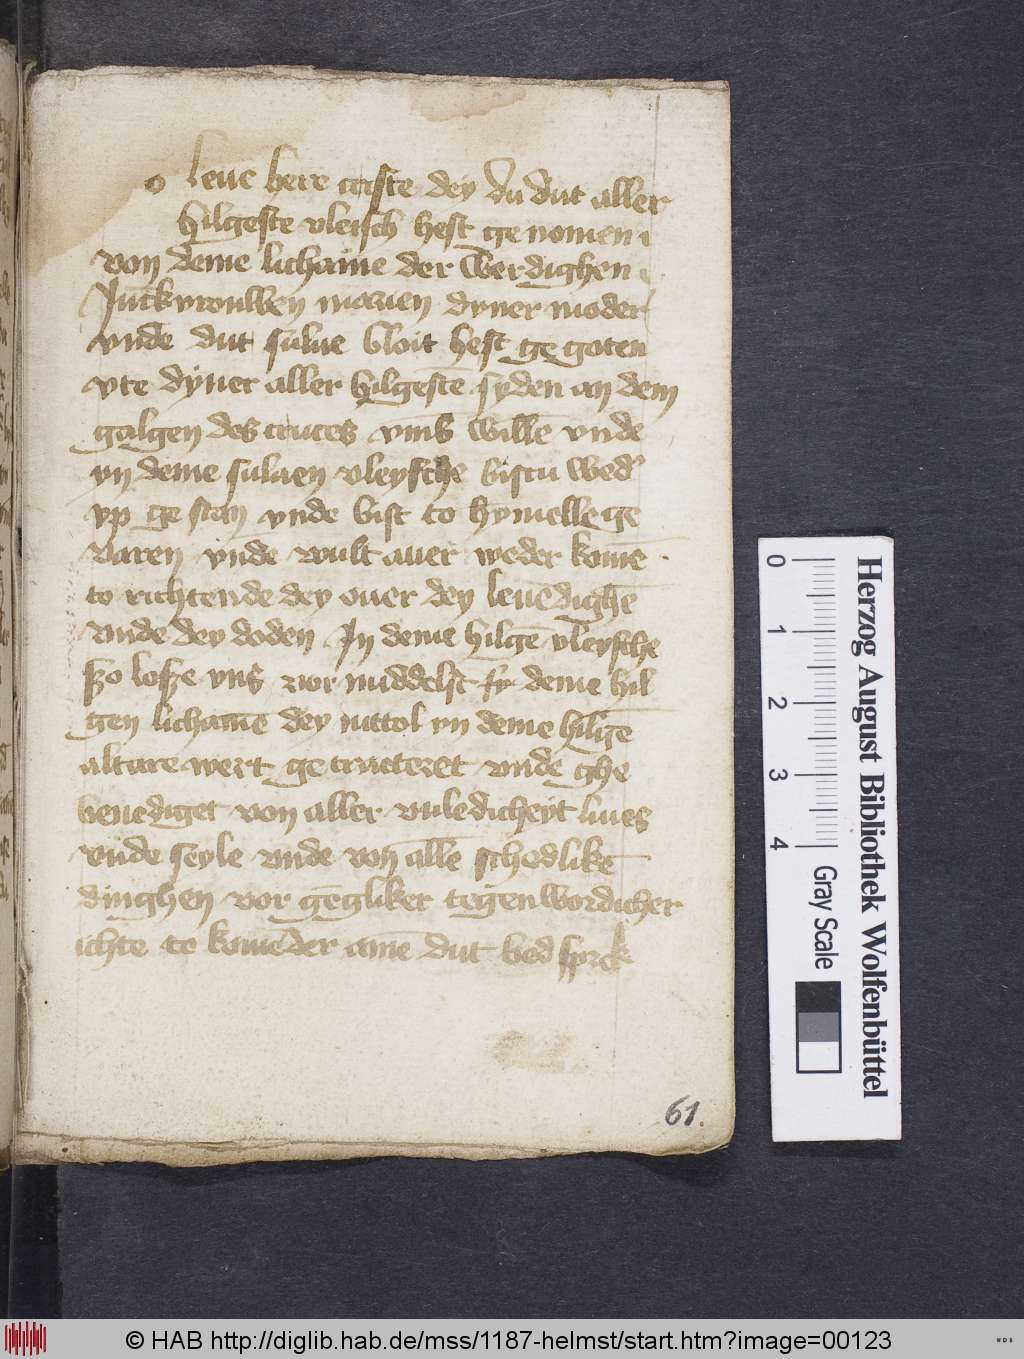 o leue here criste dey du dut aller
hilgeste vleisch hest ge nomen
von deme lichāme der werdighen
Junckvrouwen marien dyner moder
vnde dut sulue bloit hest ge goten
vte dyner aller hilgestē syden an dem
galgen des cruces vm̄s wille vnde
yn deme suluen vleysche bistu wed'
vp ge stan vnde bist to hymelle ge
varen vnde wult auer weder kome
to richtende dey ouer dey leuēdighē
vnde dey doden In deme hilgē vleysche
szo losze vns vor middelst deme hil
gen lichāme dey nuttol yn deme hiligē
altare wert ge tracteret vnde ghe
benediget von aller vuledicheyt liues
vnde seyle vnde von allē schedlikē
dinghen vor gēgliker tegenwordicher
ichte to komēder amē dut bed sprek
61.
Herzog August Bibliothek Wolfenbüttel
0 1 2 3 4
Gray Scale
© HAB http://diglib.hab.de/mss/1187-helmst/start.htm?image=00123